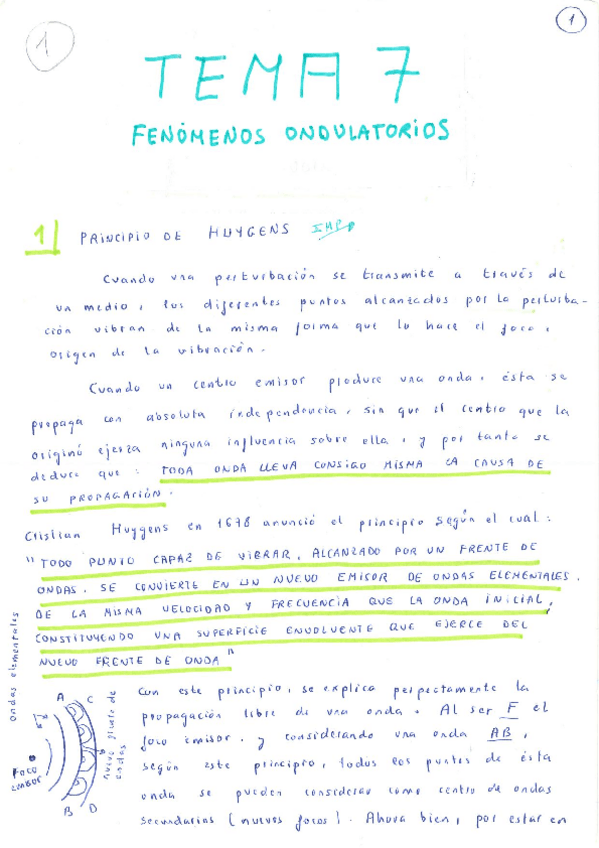 1
1
TEMA 7
FENÓMENOS ONDULATORIOS
1 PRINCIPIO DE HUYGENS IMP
Cuando una perturbación se transmite a través de
un medio, los diferentes puntos alcanzados por la perturba-
ción vibran de la misma forma que lo hace el foco,
origen de la vibración.
Cuando un centro emisor produce una onda, ésta se
propaga con absoluta independencia, sin que el centro que la
originó ejerza ninguna influencia sobre ella, y por tanto se
deduce que: TODA ONDA LLEVA CONSIGO MISMA LA CAUSA DE
SU PROPAGACIÓN.
Cristian Huygens en 1678 anunció el principio según el cual:
"TODO PUNTO CAPAZ DE VIBRAR, ALCANZADO POR UN FRENTE DE
ONDAS, SE CONVIERTE EN UN NUEVO EMISOR DE ONDAS ELEMENTALES,
DE LA MISMA VELOCIDAD Y FRECUENCIA QUE LA ONDA INICIAL,
CONSTITUYENDO UNA SUPERFICIE ENVOLVENTE QUE EJERCE DEL
NUEVO FRENTE DE ONDA"
ondas elementales
A C
Foco
emisor
nuevo frente de
ondas
B D
Con este principio, se explica perfectamente la
propagación libre de una onda. Al ser F el
foco emisor, y considerando una onda AB,
según este principio, todos los puntos de ésta
onda se pueden considerar como centro de ondas
secundarias (nuevos focos). Ahora bien, por estar en